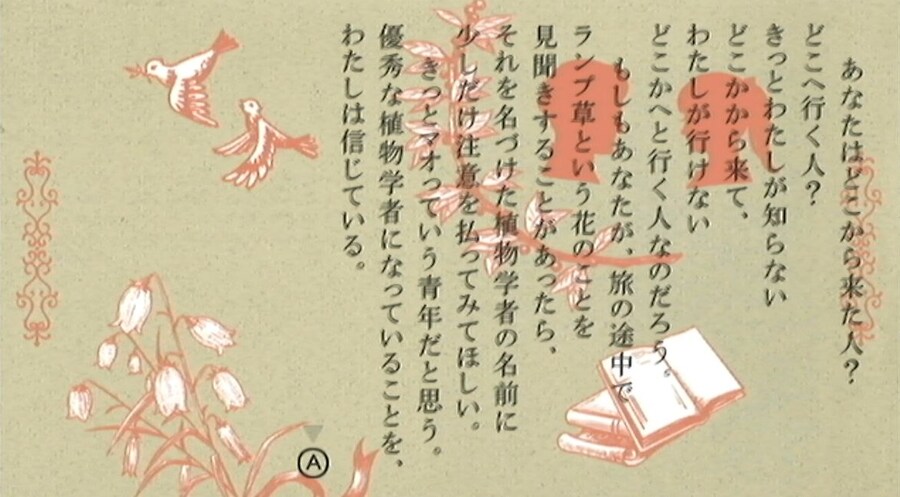 あなたはどこから来た人？
どこへ行く人？
きっとわたしが知らない
どこかから来て、
わたしが行けない
どこかへと行く人なのだろう。
もしもあなたが、旅の途中で
ランプ草という花のことを
見聞きすることがあったら、
それを名づけた植物学者の名前に
少しだけ注意を払ってみてほしい。
きっとマオっていう青年だと思う。
優秀な植物学者になっていることを、
わたしは信じている。
A